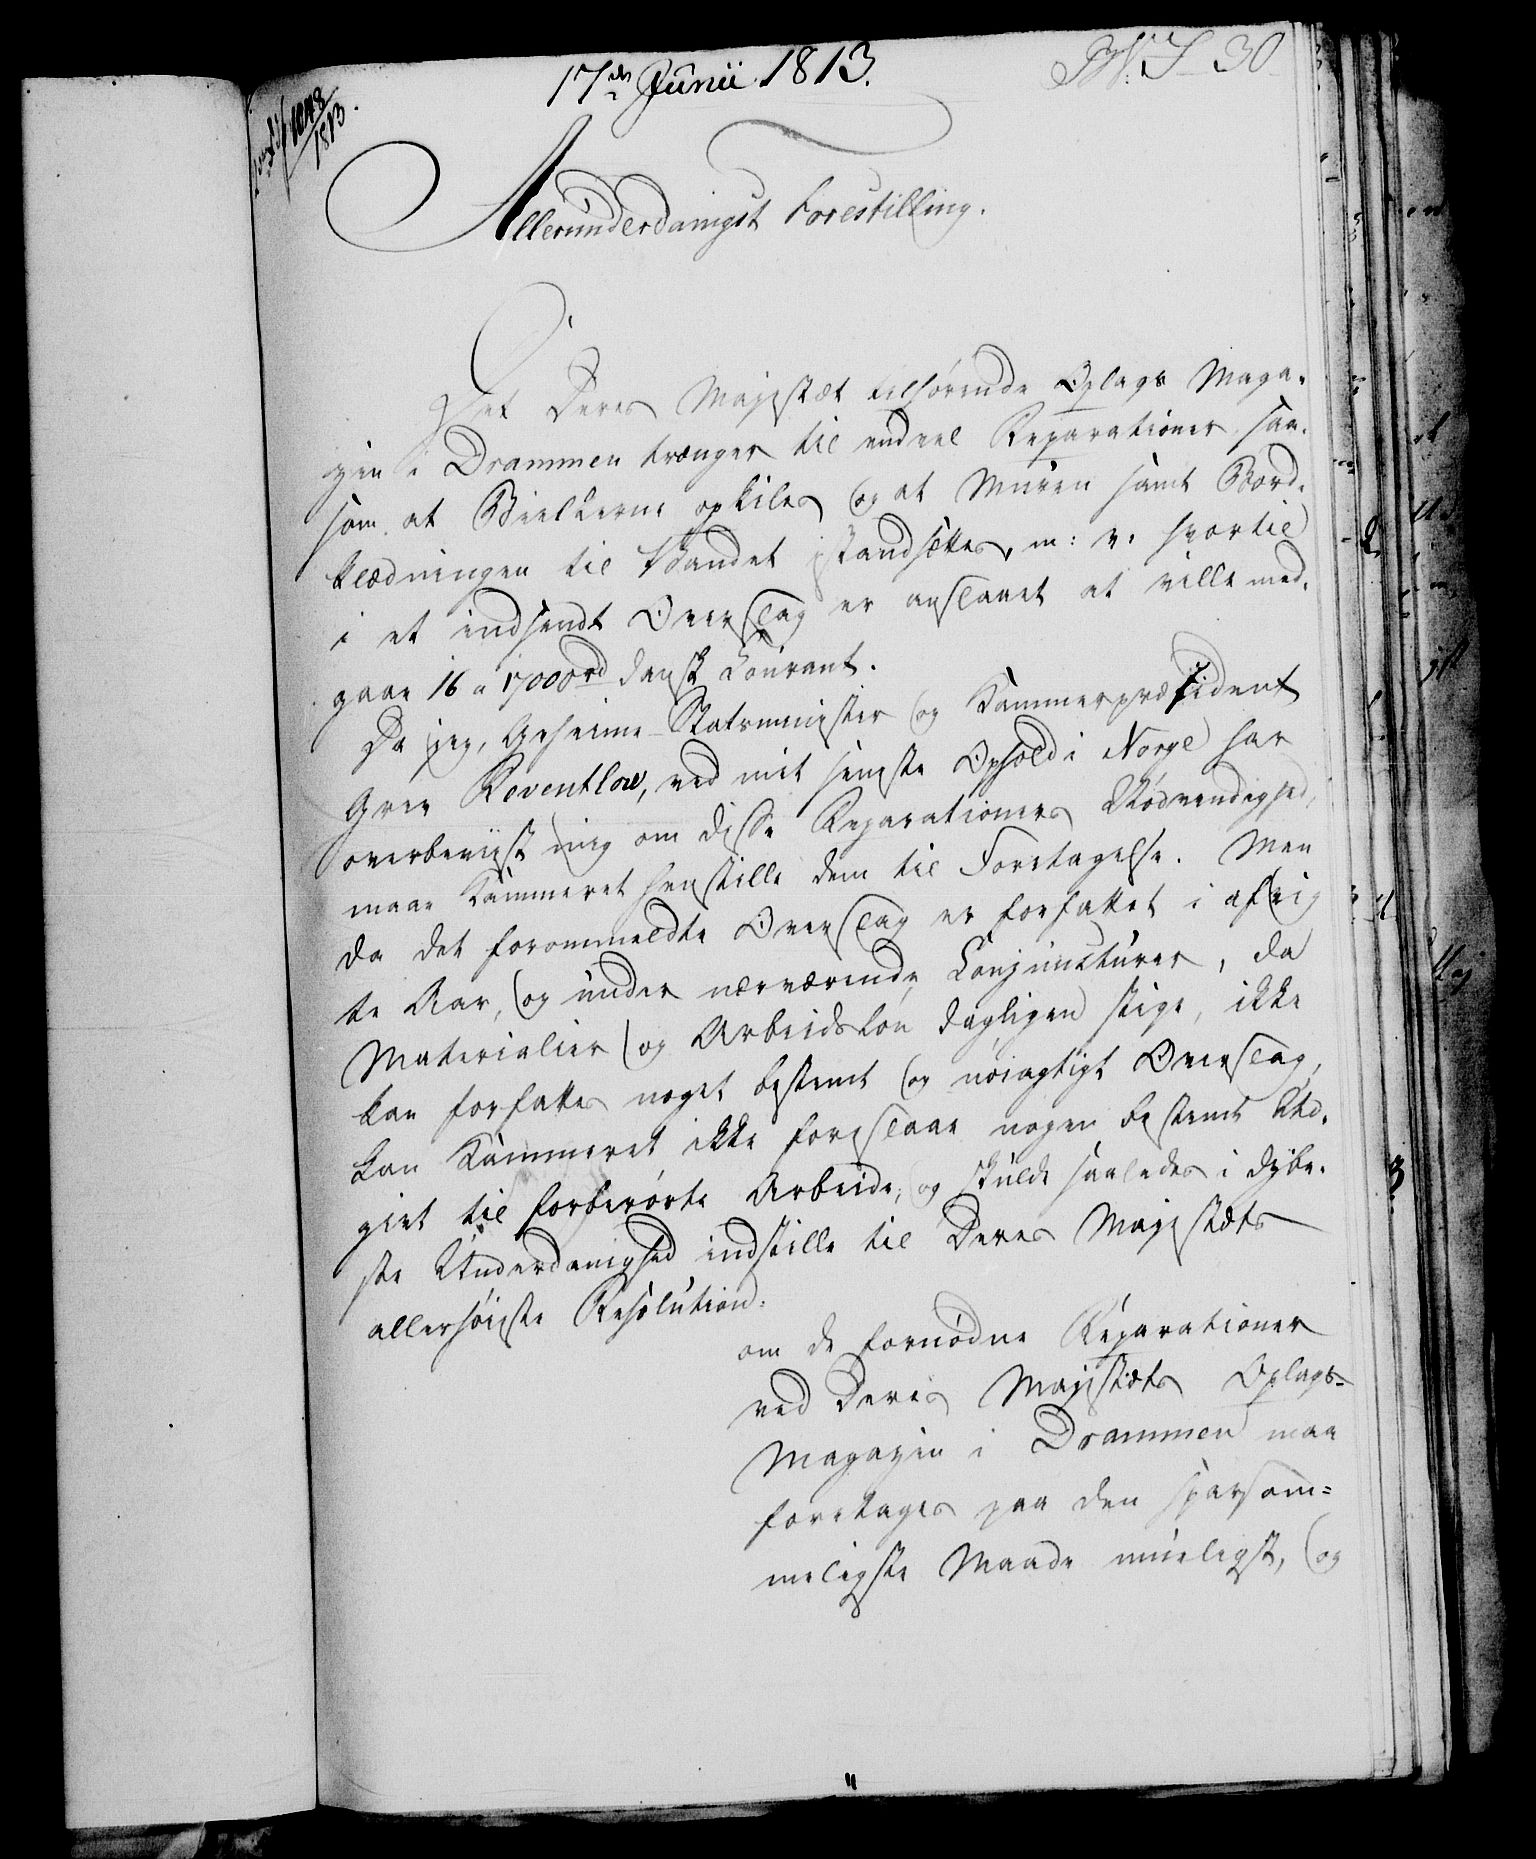 17de Junii 1813.
1048
1813.
Allerunderdanigst Forestilling.
Det Deres Majestæt tilhørende Oplags Maga-
zin i Drammen trænger til endeel Reparationer saa-
som at Bielkerne opkiles og at Muren samt Bord-
klædningen til Vandet istandsættes, m: v: hvortil
i et indsendt Overslag er anslaaet at ville med-
gaae 16 a 17000 rd dansk Courant.
Da jeg, Geheime-Statsminister og Kammerpræsident
Grev Reventlow, ved mit seneste Ophold i Norge har
overbeviist mig om disse Reparationers Nødvendighed,
maae Kammeret henstille dem til Foretagelse. Men
da det forommeldte Overslag er forfattet i afvig-
te Aar, og under nærværende Conjuncturer, da
Materialier og Arbeidsløn dagligen stige, ikke
kan forfattes noget bestemt og nøiagtigt Overslag,
kan Kammeret ikke foreslaae nogen bestemt Ud-
givt til forberørte Arbeide, og skulde saaledes i dybe-
ste Underdanighed indstille til Deres Majestæts
allerhøieste Resolution:
om de fornødne Reparationer
ved Deres Majestæts Oplags-
Magazin i Drammen maa
foretages paa den sparsom-
meligste Maade mueligst, og